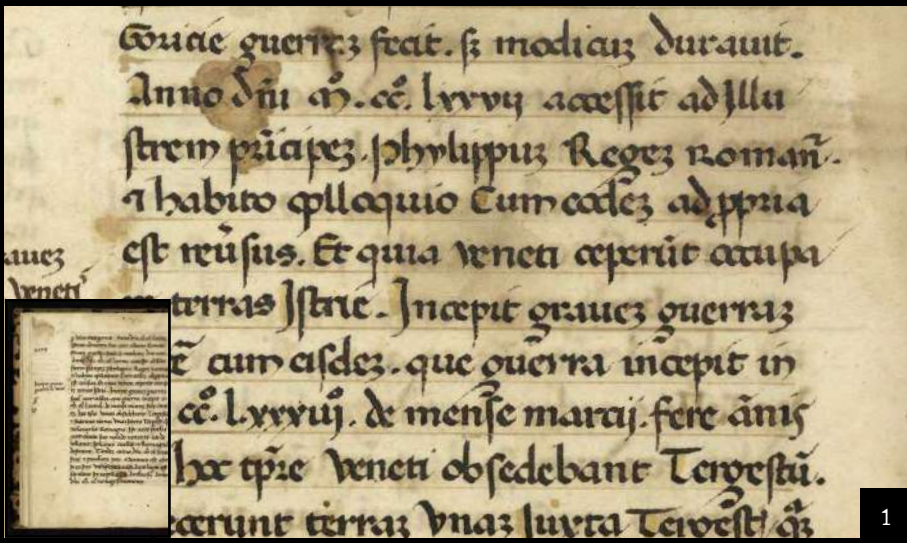 Goricie guerraȝ fecit. sȝ modicuȝ durauit.
Anno dñi m̊. cc̊. lxxvij accessit ad Jllu
strem pⁱncipeȝ. phylippuȝ Regeȝ roman̄.
⁊ habito ꝯlloquio Cum eodeȝ ad ꝓpria
est reu̾sus. Et quia veneti ceperūt occupa
aueȝ
terras Jstrie. Jncepit graueȝ guerraȝ
venetī
cum eisdeȝ. que gue̾rra incepit in
cc̊. Lxxxiij. de mense marcij. fere ānis
hoc tp̄re veneti obsedebant Tergestū.
terraȝ vnaȝ Juxta Tergest̾
1